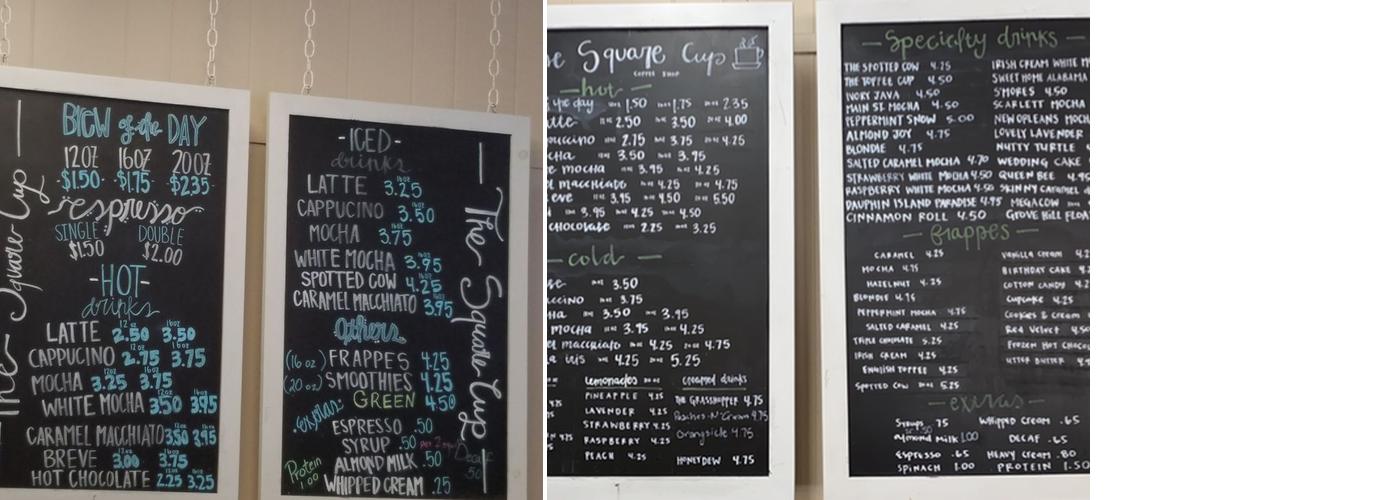 The Square Cup
BREW of the DAY
12OZ 16OZ 20OZ
$1.50 $1.75 $2.35
espresso
SINGLE DOUBLE
$1.50 $2.00
-HOT-
drinks
12oz 16oz
LATTE 2.50 3.50
CAPPUCINO 2.75 3.75
MOCHA 3.25 3.75
WHITE MOCHA 3.50 3.95
CARAMEL MACCHIATO 3.50 3.95
BREVE 3.00 3.75
HOT CHOCOLATE 2.25 3.25
-ICED-
drinks
LATTE 3.25
CAPPUCINO 3.50
MOCHA 3.75
WHITE MOCHA 3.95
SPOTTED COW 4.25
CARAMEL MACCHIATO 3.95
others
(16 oz) FRAPPES 4.25
(20 oz) SMOOTHIES 4.25
GREEN 4.50
extras:
ESPRESSO .50
SYRUP .50
ALMOND MILK .50
WHIPPED CREAM .25
Protein 1.00
Decaf .50
The Square Cup
Square Cup
COFFEE SHOP
— hot —
the day 1.50 1.75 2.35
2.50 3.50 4.00
2.75 3.75 4.25
3.50 3.95
mocha 3.95 4.25
macchiato 4.25 4.75
eve 3.95 4.50 5.50
3.95 4.25 4.50
CHOCOLATE 2.25 3.25
— cold —
3.50
3.75
3.50 3.95
mocha 3.95 4.25
macchiato 4.25 4.75
4.25 5.25
Lemonades
PINEAPPLE 4.25
LAVENDER 4.25
STRAWBERRY 4.25
RASPBERRY 4.25
PEACH 4.25
creamed drinks
THE GRASSHOPPER 4.75
Peaches-N-Cream 4.75
Orangsicle 4.75
HONEYDEW 4.75
— Specialty drinks —
THE SPOTTED COW 4.25
THE TOFFEE CUP 4.50
IVORY JAVA 4.50
MAIN ST. MOCHA 4.50
PEPPERMINT SNOW 5.00
ALMOND JOY 4.75
BLONDIE 4.75
SALTED CARAMEL MOCHA 4.70
STRAWBERRY WHITE MOCHA 4.50
RASPBERRY WHITE MOCHA 4.50
DAUPHIN ISLAND PARADISE 4.95
CINNAMON ROLL 4.50
IRISH CREAM WHITE M
SWEET HOME ALABAMA
S'MORES 4.50
SCARLETT MOCHA
NEW ORLEANS MOCH
LOVELY LAVENDER
NUTTY TURTLE
WEDDING CAKE
QUEEN BEE 4.95
SKINNY CARAMEL
MEGACOW
GROVE HILL FLOA
— frappes —
CARAMEL 4.25
MOCHA 4.75
HAZELNUT 4.25
BLONDIE 4.75
PEPPERMINT MOCHA 4.75
SALTED CARAMEL 4.25
TRIPLE CHOCOLATE 5.25
IRISH CREAM 4.25
ENGLISH TOFFEE 4.25
SPOTTED COW 5.25
Vanilla cream 4.2
BIRTHDAY CAKE
COTTON CANDY 4.2
Cupcake 4.25
Cookies & cream
Red Velvet 4.50
FROZEN HOT CHOCOL
— extras —
Syrups .75
almond Milk 1.00
Espresso .65
SPINACH 1.00
Whipped cream .65
DECAF .65
HEAVY cream .80
PROTEIN 1.50